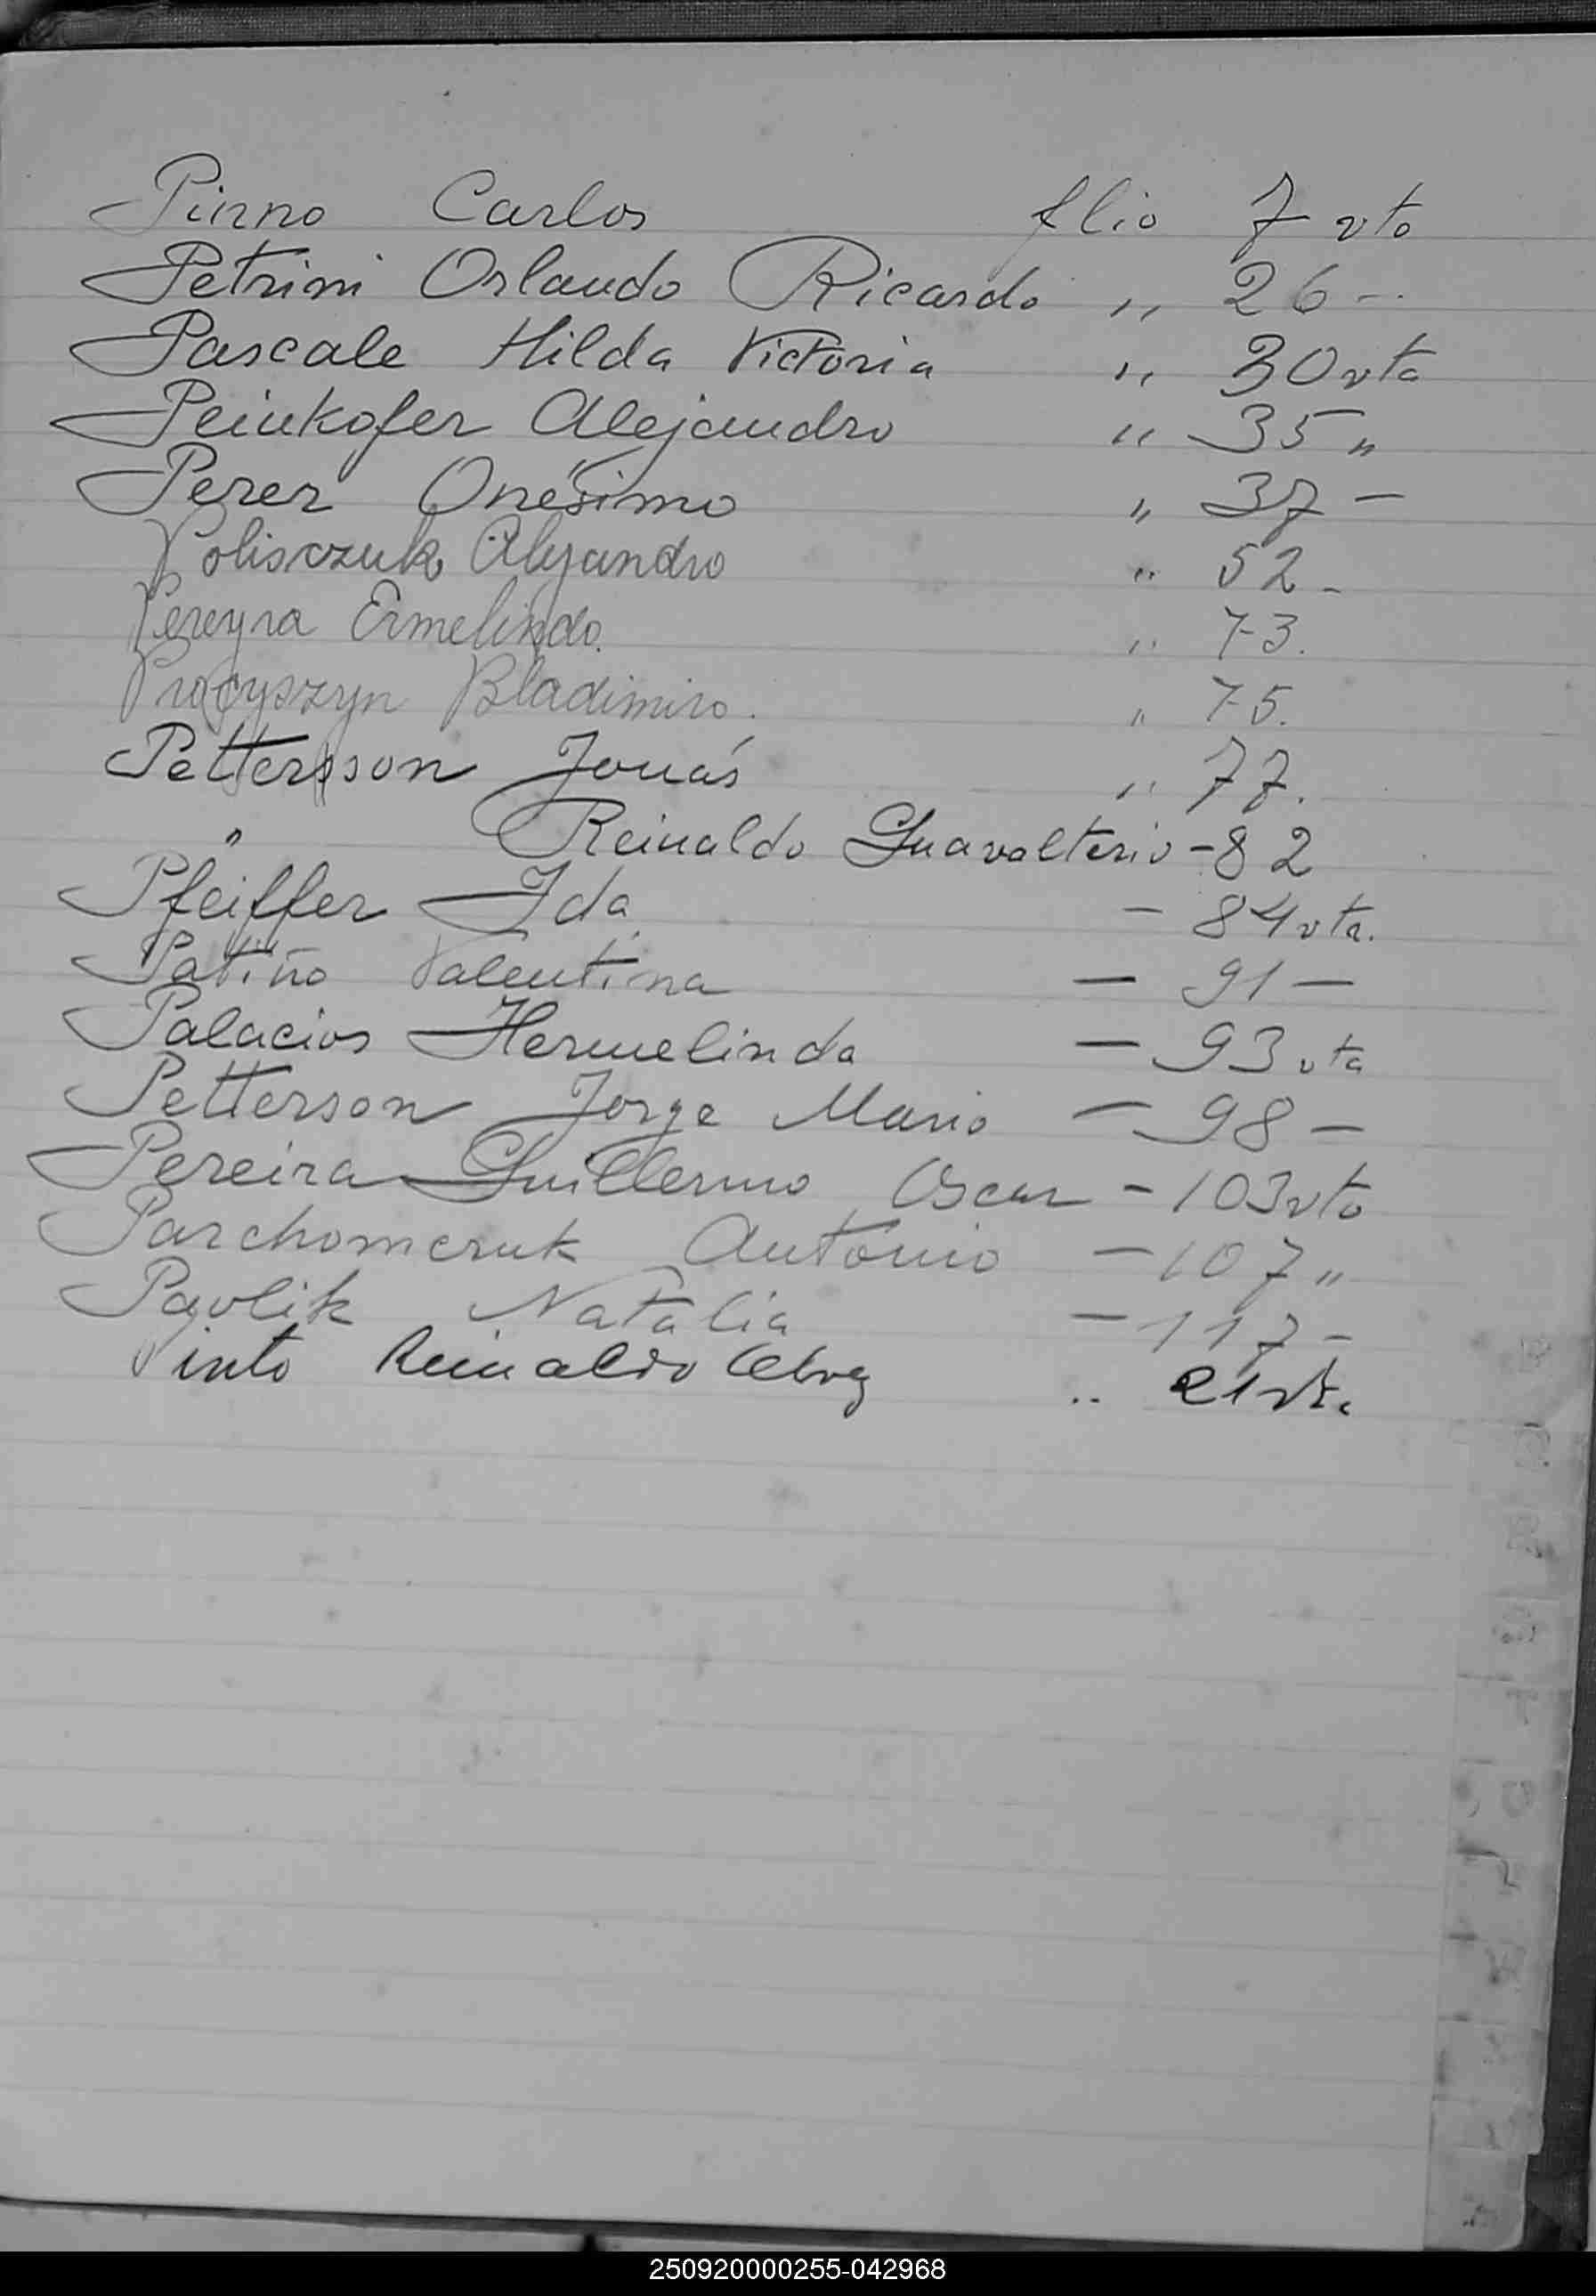 Pinno Carlos flio 7 vto
Petrini Orlando Ricardo ,, 26 -
Pascale Hilda Victoria ,, 30 vta
Peinkofer Alejandro ,, 35 „
Perez Onésimo ,, 37 -
Polisczuk Alejandro ,, 52 -
Pereyra Ermelindo. ,, 73.
Procyszyn Bladimiro. ,, 75.
Pettersson Jonás ,, 77.
" Reinaldo Gualterio - 82
Pfeiffer Ida - 84 vta.
Patiño Valentina - 91 -
Palacios Hermelinda - 93 vta
Petterson Jorge Mario - 98 -
Pereira Guillermo Oscar - 103 vto
Parchomczuk Antonio - 107 „
Pavlik Natalia - 117 -
Pinto Reinaldo .. 21 vta
250920000255-042968